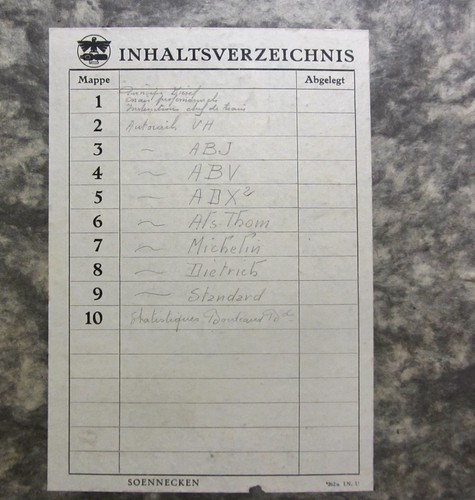 INHALTSVERZEICHNIS
Mappe Abgelegt
1
2 Autorails VH
3 ~ ABJ
4 ~ ABV
5 ~ ADX²
6 ~ Als. Thom
7 ~ Michelin
8 ~ Dietrich
9 ~ Standard
10 Statistiques
SOENNECKEN